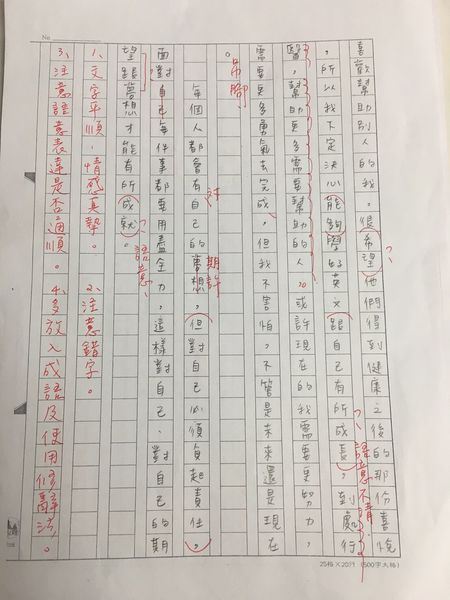 No.
喜歡幫助別人的我,很希望他們得到健康之後的那份喜悅
,所以我下定決心能夠學好英文跟自己有所成長,到處行
語意不清
醫,幫助更多需要幫助的人。或許現在的我需要更努力,
需要更多勇氣去完成,但我不害怕,不管是未來還是現在,
。
吊腳
對
期許
每個人都會有自己的夢想,但對自己必須負起責任,
面對自己每件事都要用盡全力,這樣對自己、對自己的期
望跟夢想才能有所成就。
語意
1、文字平順,情感真摯。 2、注意錯字。
3、注意語意表達是否通順。 4、多放入成語及使用修辭法。
25格×20行 (500字大格)